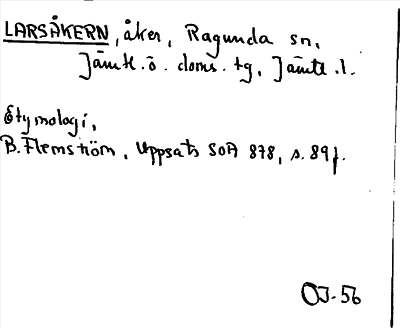 LARSÅKERN, åker, Ragunda sn,
Jämtl. ö. doms. tg, Jämtl. l.
Etymologi,
B. Flemström, Uppsats SOA 878, s. 89 f.
OJ-56